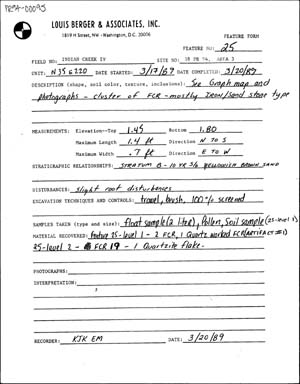 PRSA-00095
LOUIS BERGER & ASSOCIATES, INC.
1819 H Street, NW · Washington, D.C. 20006
FEATURE FORM
FEATURE NO. 25
FIELD NO. INDIAN CREEK IV SITE NO: 18 PR 94, AREA 3
UNIT: N35 E220 DATE STARTED: 3/17/89 DATE COMPLETED: 3/20/89
DESCRIPTION (shape, soil color, texture, inclusions): See Graph map and
photographs - cluster of FCR - mostly Iron/sand stone type
MEASUREMENTS: Elevation--Top 1.45 Bottom 1.80
Maximum Length 1.4 ft Direction N to S
Maximum Width .7 ft Direction E to W
STRATIGRAPHIC RELATIONSHIPS: STRATUM B - 10 YR 5/6 YELLOWISH BROWN SAND
DISTURBANCES: Slight root disturbances
EXCAVATION TECHNIQUES AND CONTROLS: trowel, brush, 100% screened
SAMPLES TAKEN (type and size): float sample (2 liter), Pollen, Soil sample (25-level 1)
MATERIAL RECOVERED: feature 25-level 1 - 2 FCR, 1 Quartz worked FCR (ARTIFACT #1)
25-level 2 - FCR 19 - 1 Quartzite flake.
PHOTOGRAPHS:
INTERPRETATION:
RECORDER: KJK EM DATE: 3/20/89